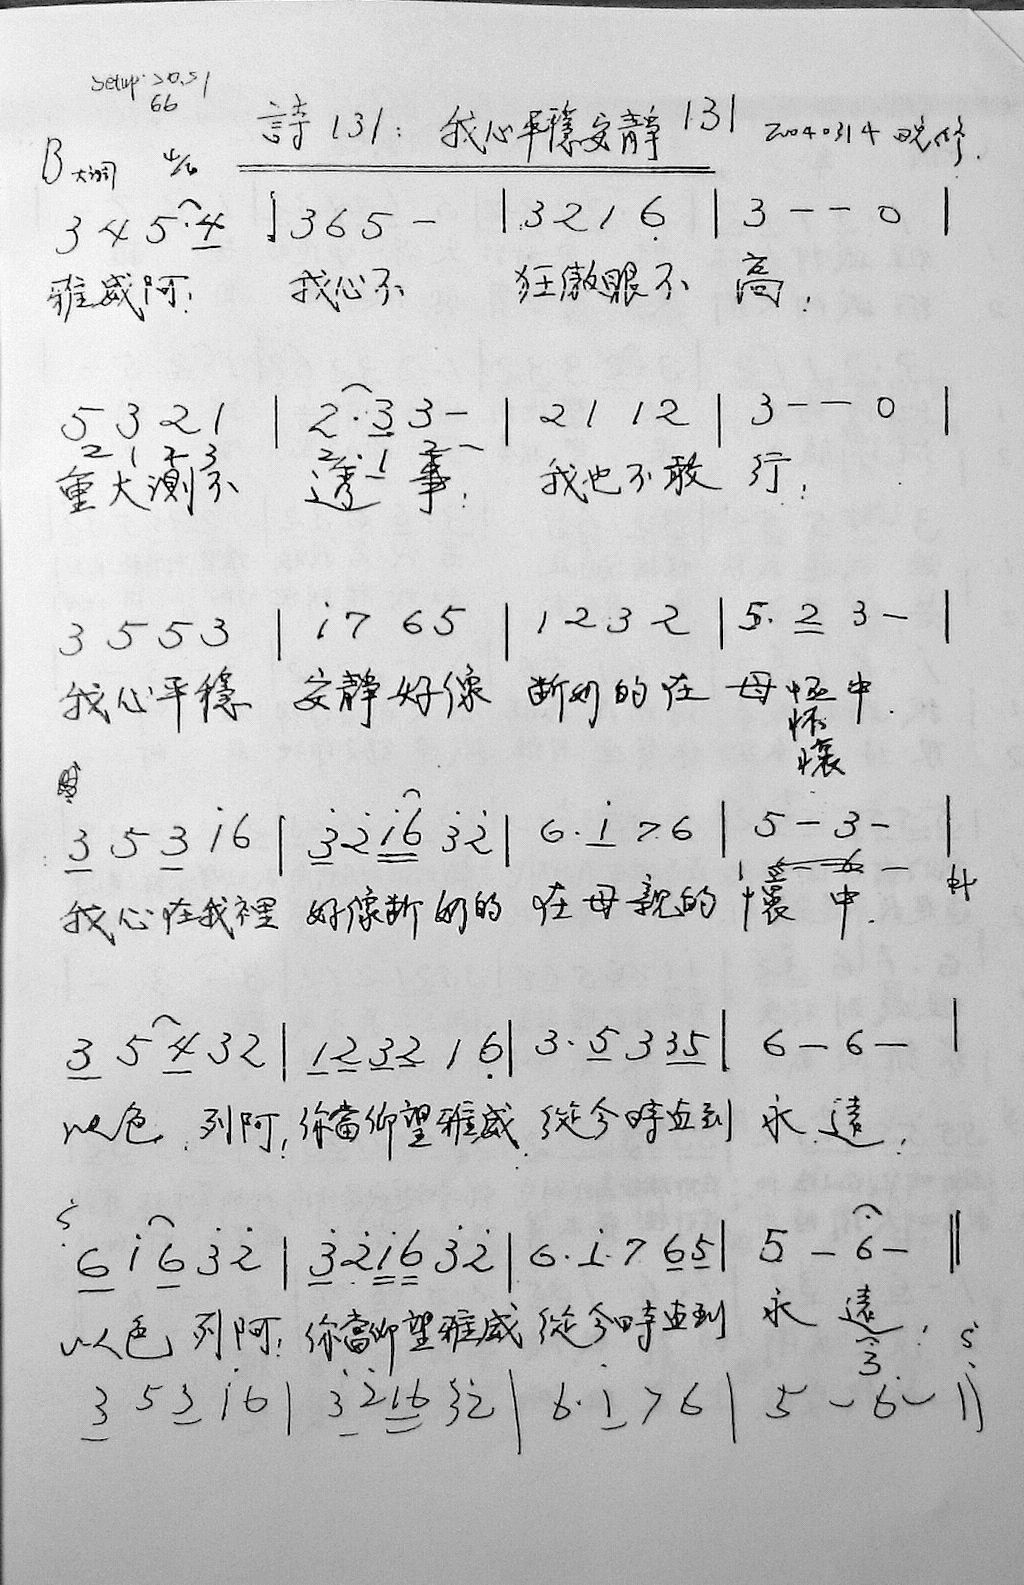 setup: 20.51
66
詩131: 我心平穩安靜 131 20040314 晚修.
B大調 4/4
3 4 5·4 | 3 6 5 - | 3 2 1 6 | 3 - - 0 |
雅威阿! 我心不 狂傲眼不 高,
5 3 2 1 | 2·3 3 - | 2 1 1 2 | 3 - - 0 |
2 1 2 3 2·1 2 -
重大測不 透事, 我也不敢 行,
3 5 5 3 | i 7 6 5 | 1 2 3 2 | 5·2 3 - |
我心平穩 安靜好像 斷奶的在 母 中.
懷
3 5 3 i 6 | 3 2 i 6 3 2 | 6·i 7 6 | 5 - 3 - |
我心在我裡 好像斷奶的 在母親的 懷中.
3 5 4 3 2 | 1 2 3 2 1 6 | 3·5 3 3 5 | 6 - 6 - |
以色列阿, 你當仰望雅威 從今時直到 永遠,
6 i 6 3 2 | 3 2 i 6 3 2 | 6·i·7 6 5 | 5 - 6 - ||
以色列阿, 你當仰望雅威 從今時直到 永遠,
3
3 5 3 i 6 | 3 2 i 6 3 2 | 6·i 7 6 | 5 - 6 - ||